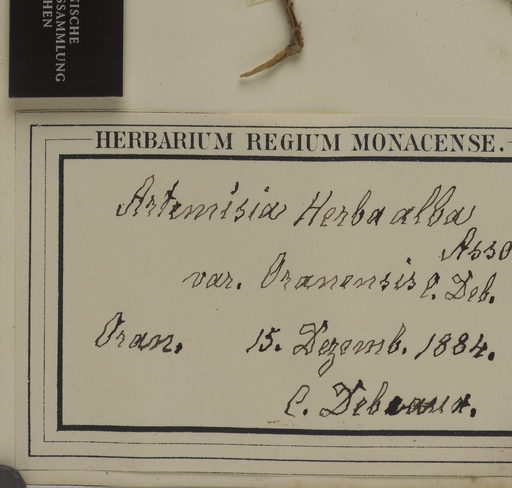 GISCHE
SSAMMLUNG
CHEN
HERBARIUM REGIUM MONACENSE.
Artemisia Herba alba
Asso
var. Oranensis C. Deb.
Oran. 15. Dezemb. 1884.
C. Debeaux.